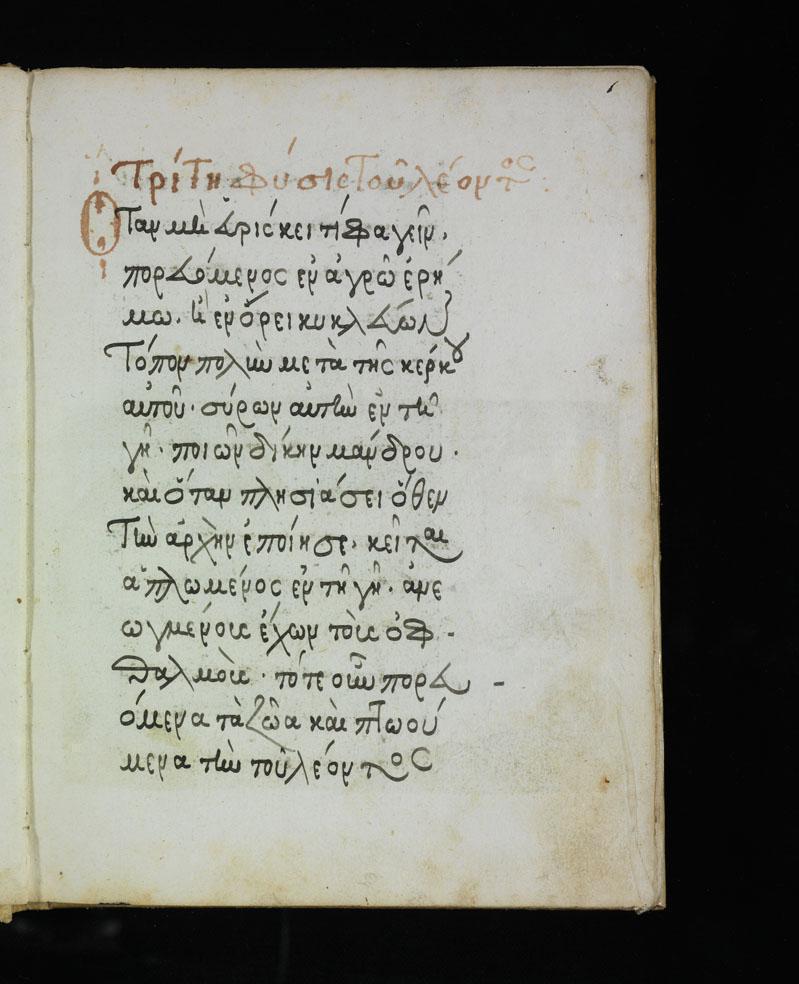 Τρίτη φύσις τοῦ λέοντος:
Ὅταν μὴ εὑρίσκει τί φαγεῖν,
πορευόμενος ἐν ἀγρῶ ἐρή
μω. ἢ ἐν ὄρει κυκλεύων
τόπον πολὺν μετὰ τῆς κέρκου
αὐτοῦ· σύρων αὐτὴν ἐν τῆ
γῆ· ποιῶν δίκην μάνδρου·
καὶ ὅταν πλησιάσει ὅθεν
τὴν ἀρχὴν ἐποίησε· κεῖται
ἁπλωμένος ἐν τῆ γῆ· ἀνε
ωγμένους ἔχων τοὺς ὀφ-
θαλμοὺς· τότε οὖν πορευ-
όμενα τὰ ζῶα καὶ πτωού
μενα τὴν τοῦ λέοντος